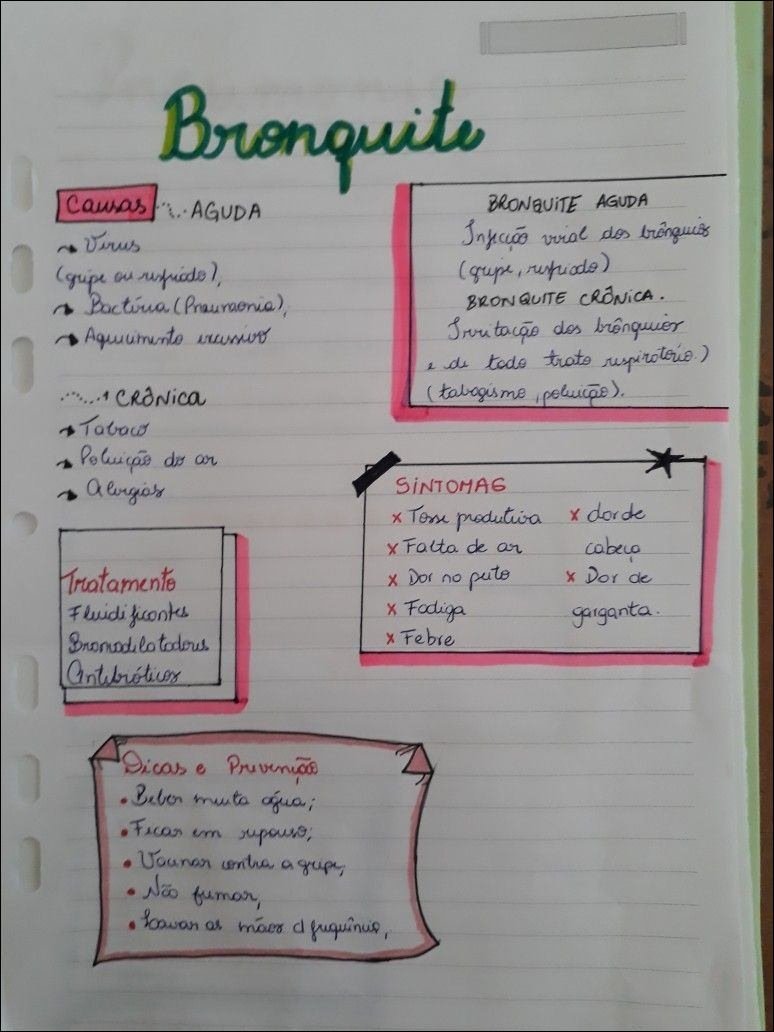 Bronquite
Causas AGUDA
Vírus
(gripe ou resfriado),
Bactéria (Pneumonia),
Aquecimento excessivo
CRÔNICA
Tabaco
Poluição do ar
Alergias
BRONQUITE AGUDA
Infecção viral dos brônquios
(gripe, resfriado)
BRONQUITE CRÔNICA.
Irritação dos brônquios
e de todo trato respiratório.)
(tabagismo, poluição).
SINTOMAS
x Tosse produtiva x dor de
x Falta de ar cabeça
x Dor no peito x Dor de
x Fadiga garganta.
x Febre
Tratamento
Fluidificantes
Bromodilatadores
Antibióticos
Dicas e Prevenção
• Beber muita água;
• Ficar em repouso;
• Vacinar contra a gripe;
• Não fumar,
• Lavar as mãos c/ frequência,